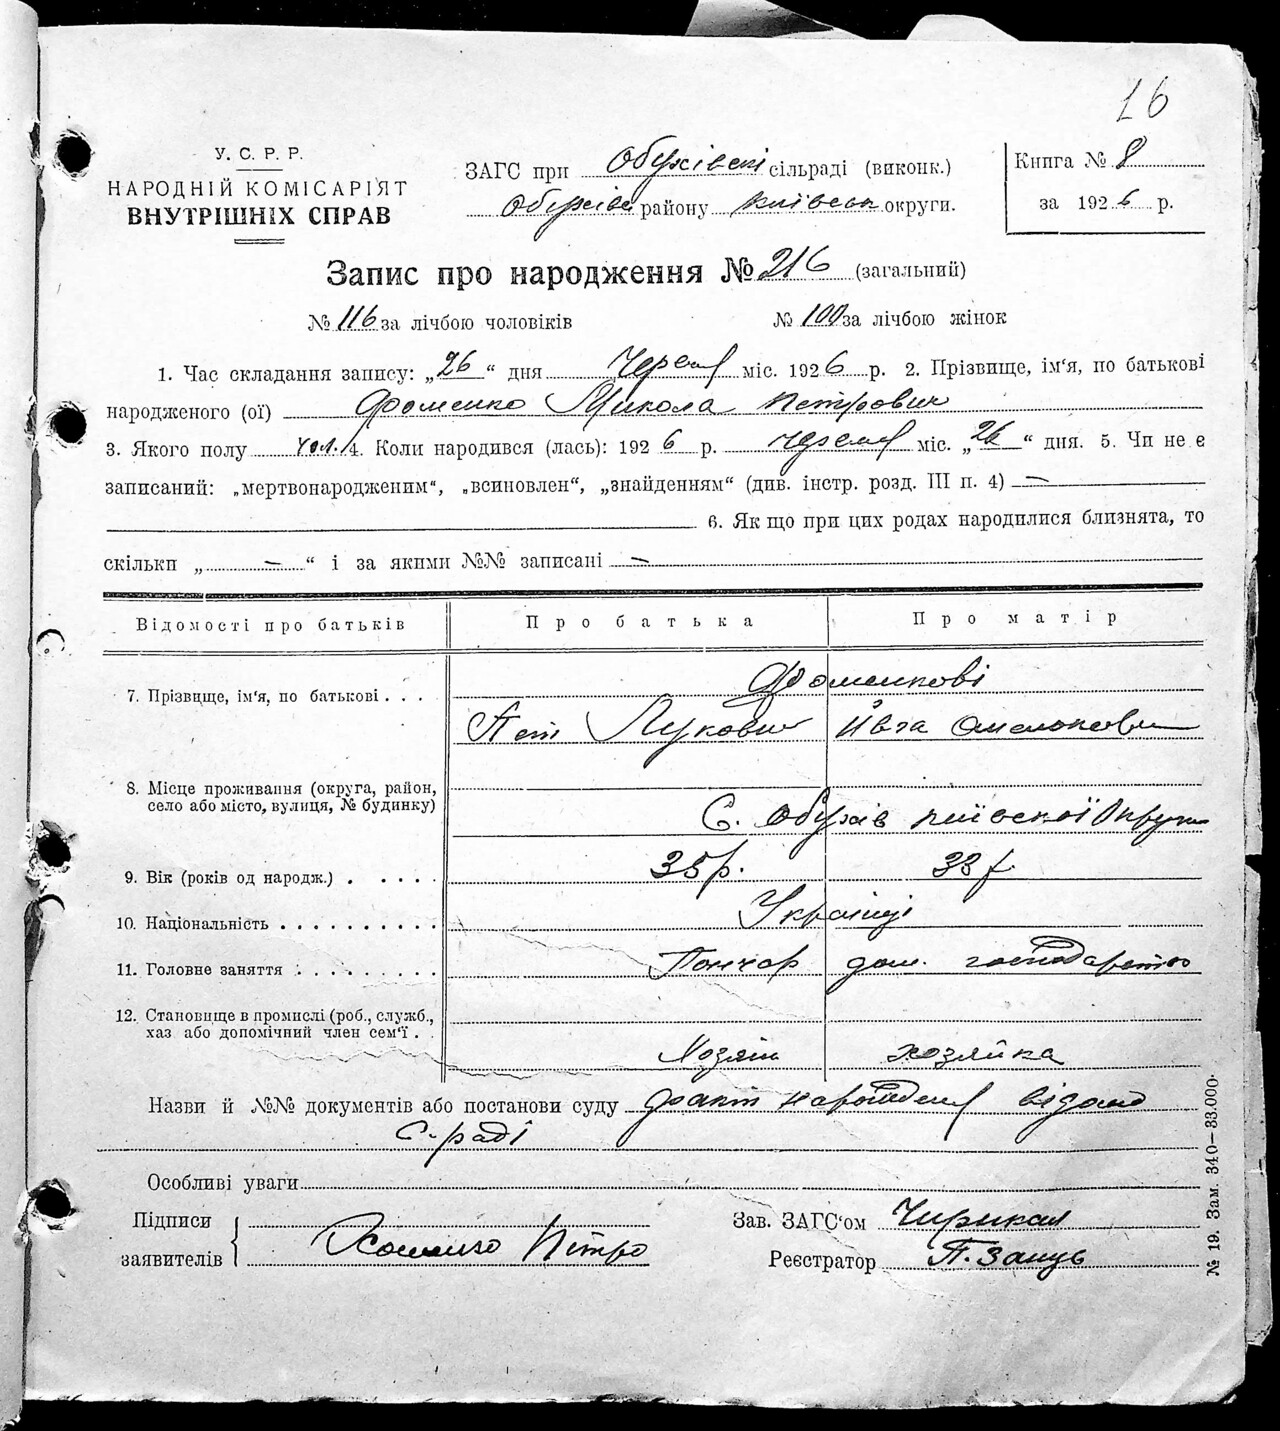 16
У. С. Р. Р.
НАРОДНІЙ КОМІСАРІЯТ
ВНУТРІШНІХ СПРАВ
ЗАГС при Обухівські сільраді (виконк.)
Обухівс району Київськ округи.
Книга № 8
за 1926 р.
Запис про народження № 216 (загальний)
№ 116 за лічбою чоловіків № 100 за лічбою жінок
1. Час складання запису: „26“ дня Червня міс. 1926 р. 2. Прізвище, ім'я, по батькові
народженого (ої) Фоменко Микола Петрович
3. Якого полу чол. 4. Коли народився (лась): 1926 р. червня міс. „26“ дня. 5. Чи не є
записаний: „мертвонародженим“, „всиновлен“, „знайденням“ (див. інстр. розд. III п. 4) —
6. Якщо при цих родах народилися близнята, то
скільки „—“ і за якими №№ записані —
Відомості про батьків Про батька Про матір
Фоменкові
7. Прізвище, ім'я, по батькові . . .
Пет Лукович Ивга Омельковн
8. Місце проживання (округа, район,
село або місто, вулиця, № будинку)
С. Обухів Київської Округи
9. Вік (років од народж.) . . . . . 35 р. 33 р.
10. Національність . . . . . . . . . . Українці
11. Головне заняття . . . . . . . . . Гончар дом. господарство
12. Становище в промислі (роб., служб.,
хаз або допомічний член сем'ї . .
Хозяін хозяйка
Назви й №№ документів або постанови суду факт народження відомо
С.-раді
Особливі уваги
Підписи
заявителів
Хоменко Петро
Зав. ЗАГС'ом
Реєстратор П. Заяць
№ 19. Зам. 340—33.000.